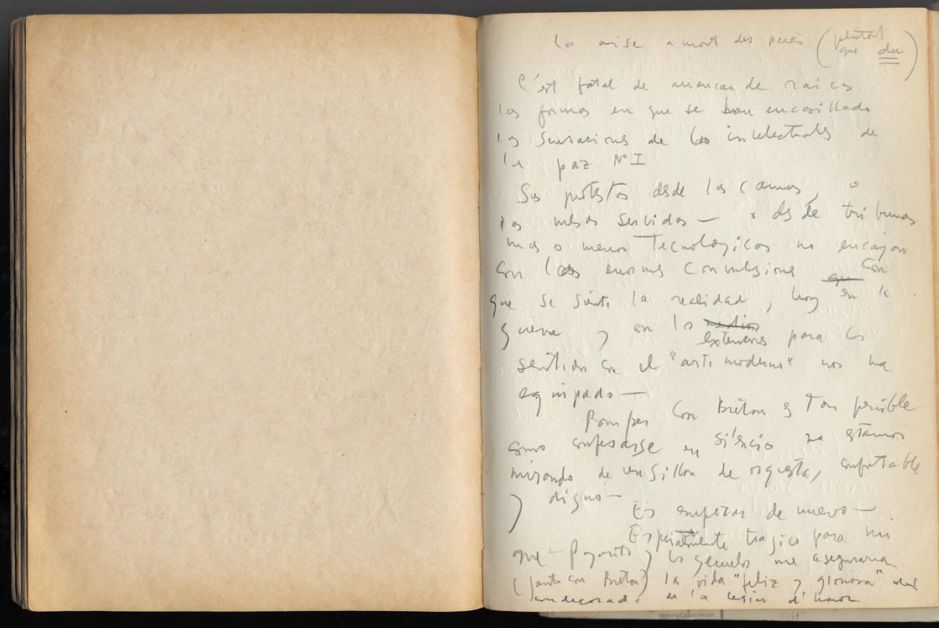 La mise a mort des pères (plutôt
que du)
C'est fatal de arrancar de raices
las formas en que se han encasillado
las sensaciones de los intelectuales de
la paz Nº I
Sus protestas desde las camas, o
las mesas servidas — o desde tribunas
mas o menos Tecnologicas no encajan
con las enormes convulsiones con
que se siente la realidad, hoy en la
guerra y en los
exteriores para los
sentidos con el "arte moderno" nos ha
equipado —
Romper con Breton es Tan penible
como confesarse en silencio estamos
mirando de un sillon de orquesta, confortable
y digno —
Es empezar de nuevo —
Especialmente tragico para mi
que — Pajarito y los gemelos me aseguraran
(junto con Breton) la vida "feliz y gloriosa" del
condecorado de la legion d'honor